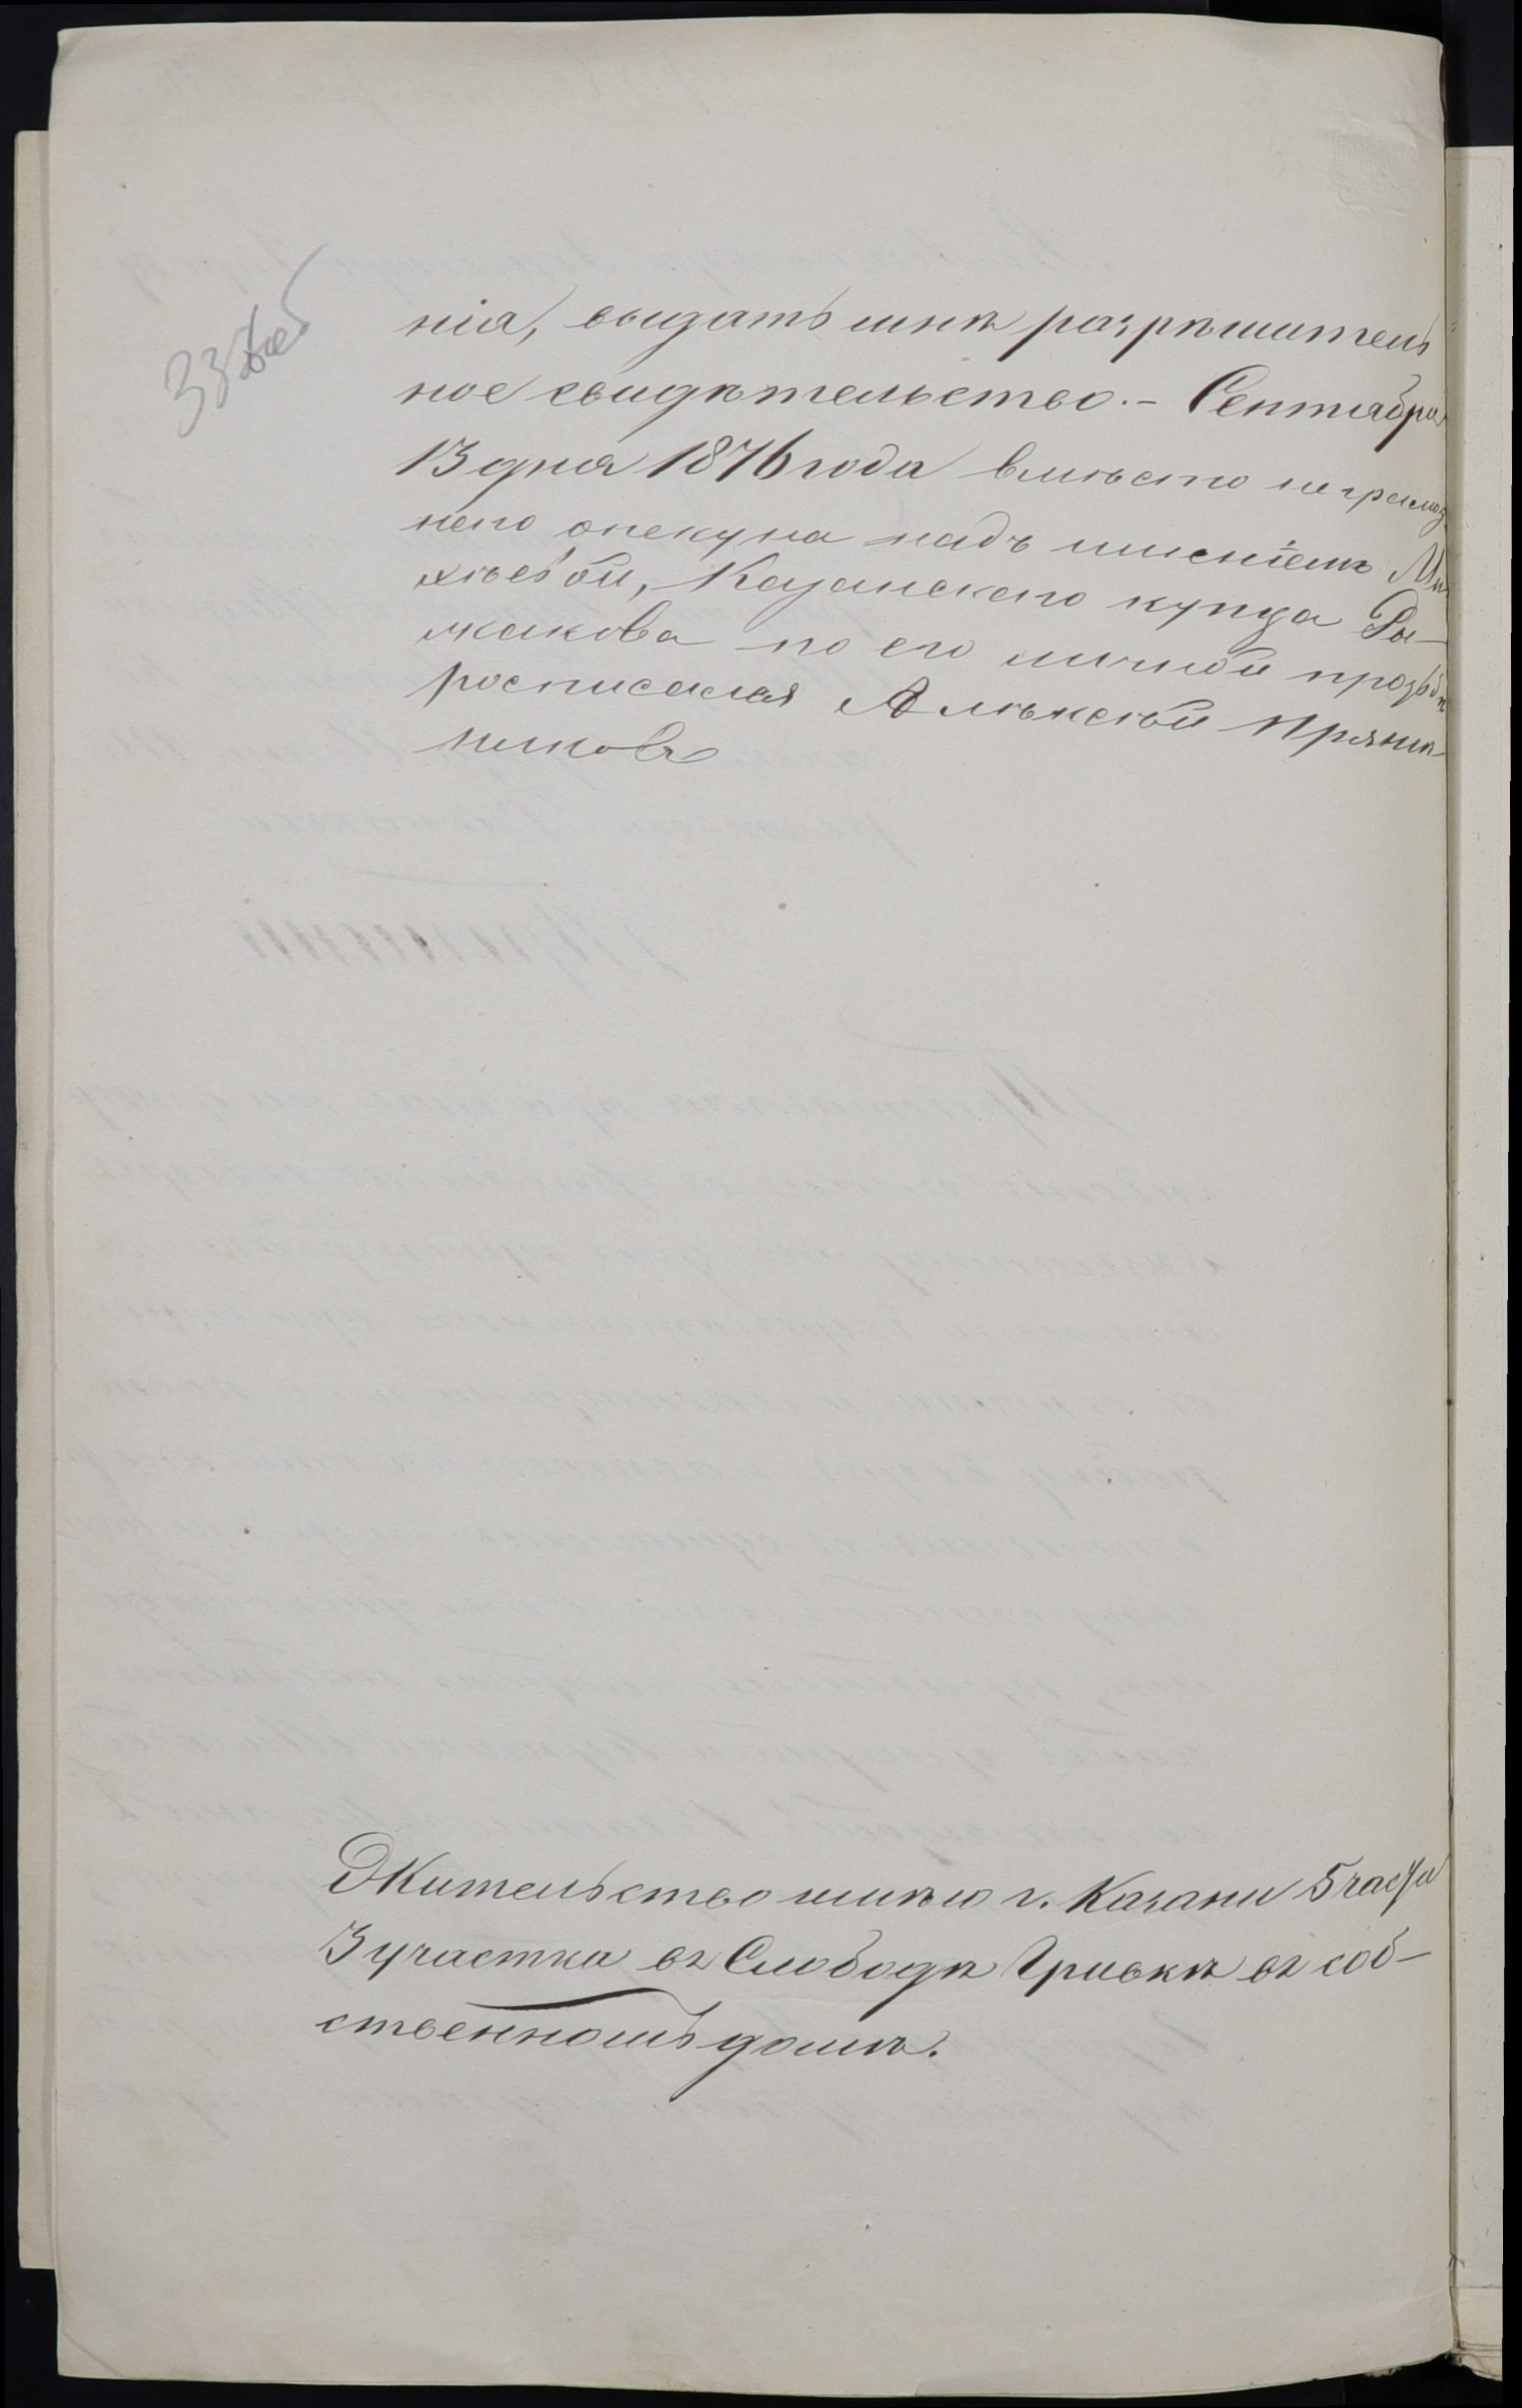 33 об
нія, выдать мнѣ разрѣшитель
ное свидѣтельство. - Сентября
13 дня 1876 года вместо неграмот
ного опекуна надъ имѣніемъ
Казанскаго купца
по его личной прозьбѣ
росписался Алѣксѣй Пряниш
никовъ
Жительство имѣю г. Казани 5 части
3 участка въ Слободѣ Гривкѣ въ соб-
ственномъ домѣ.